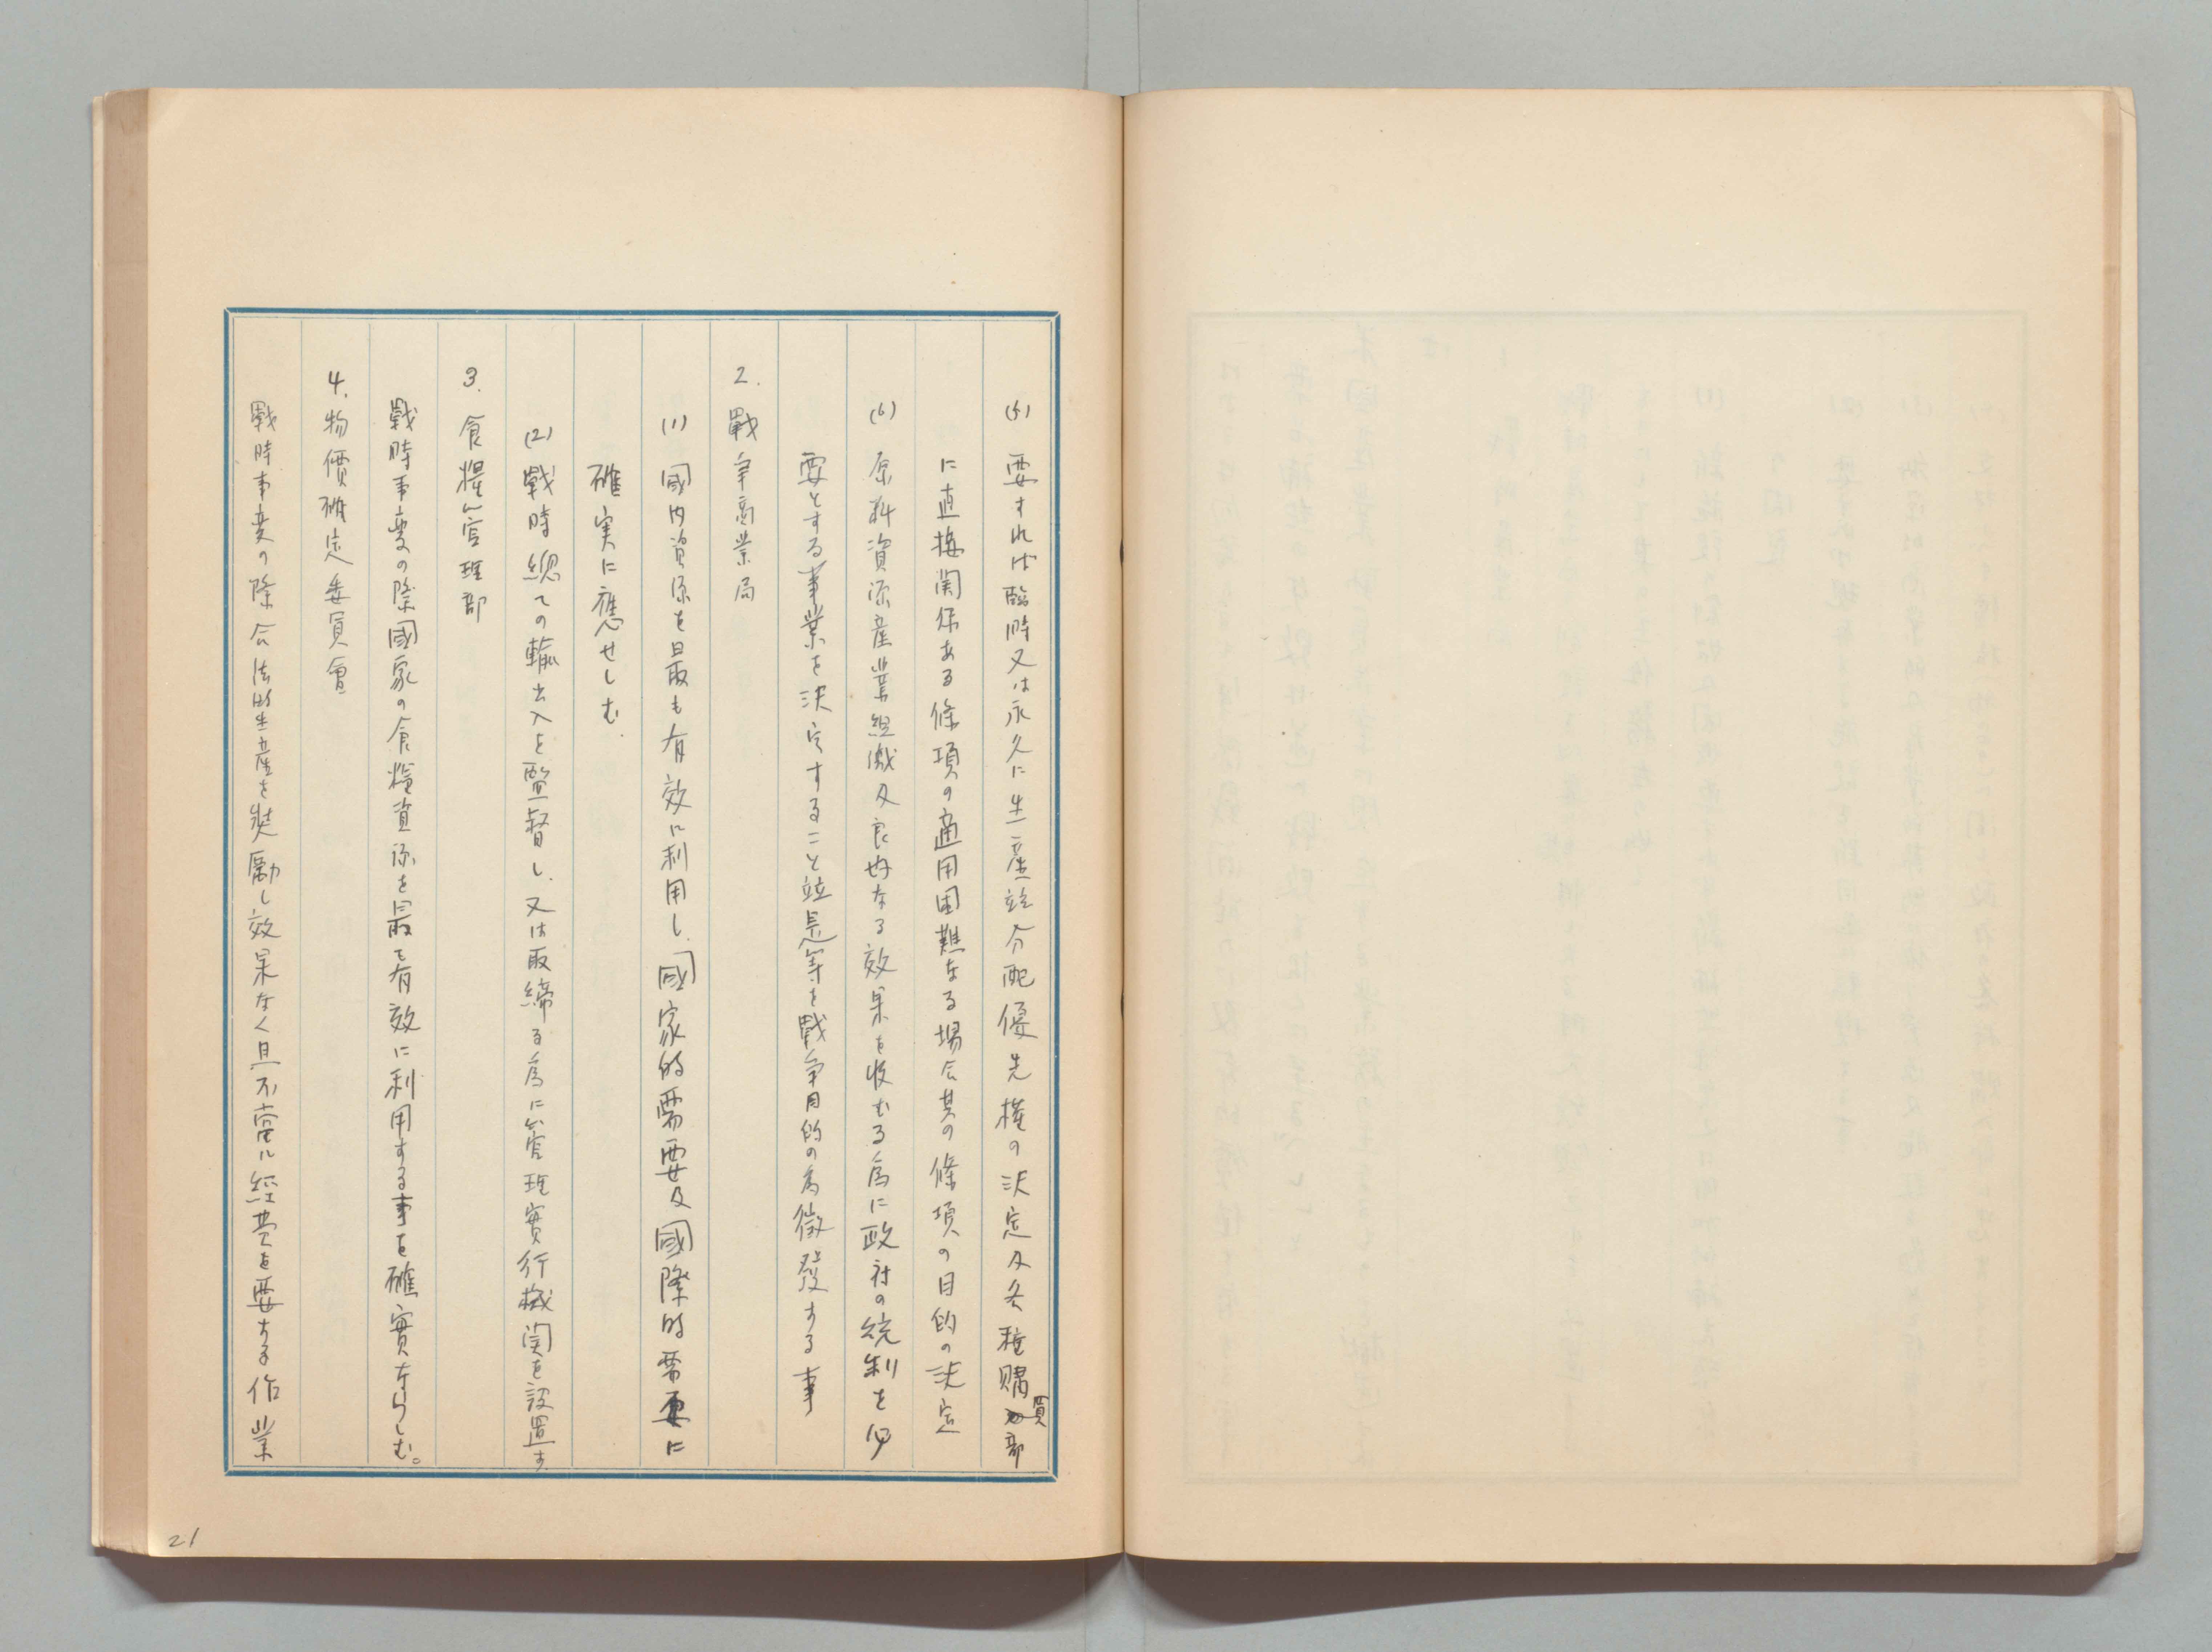 (5) 要すれば臨時又は永久に生産並分配優先権の決定及各種購買部
に直接関係ある條項の適用困難なる場合其の條項の目的の決定
(6) 原料資源産業組織及良好なる效果を收むる為に政府の統制を必
要とする事業を決定すること並是等を戰争目的の為徴發する事
2. 戰争商業局
(1) 國内資源を最も有效に利用し、國家的需要及國際的需要に
確実に應ぜしむ.
(2) 戰時總ての輸出入を監督し、又は取締る為に管理實行機関を設置す
3. 食糧管理部
戰時事変の際國家の食糧資源を最も有效に利用する事を確實ならしむ。
4. 物價確定委員會
戰時事変の際合法的生産を奨勵し效果なく且不當に經費を要する作業
21